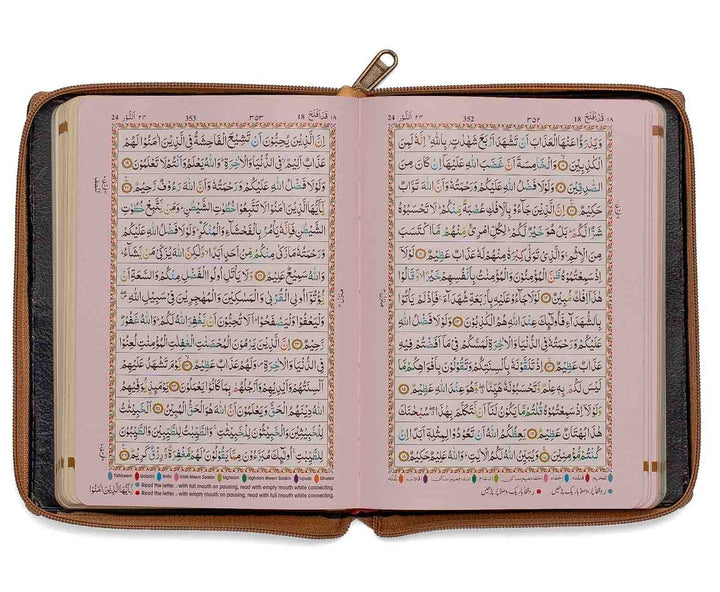 قَدْ اَفْلَحَ ١٨ 18 ٣٥٢ 352 اَلنُّوْر ٢٤ 24
وَيَدْرَؤُا عَنْهَا الْعَذَابَ اَنْ تَشْهَدَ اَرْبَعَ شَهٰدٰتٍۭ بِاللّٰهِ ۙ اِنَّهٗ لَمِنَ
الْكٰذِبِيْنَ ۙ۝ وَالْخَامِسَةَ اَنَّ غَضَبَ اللّٰهِ عَلَيْهَاۤ اِنْ كَانَ مِنَ
الصّٰدِقِيْنَ ۝ وَلَوْلَا فَضْلُ اللّٰهِ عَلَيْكُمْ وَرَحْمَتُهٗ وَاَنَّ اللّٰهَ تَوَّابٌ
حَكِيْمٌ ۝ اِنَّ الَّذِيْنَ جَآءُوْ بِالْاِفْكِ عُصْبَةٌ مِّنْكُمْ ؕ لَا تَحْسَبُوْهُ
شَرًّا لَّكُمْ ؕ بَلْ هُوَ خَيْرٌ لَّكُمْ ؕ لِكُلِّ امْرِئٍ مِّنْهُمْ مَّا اكْتَسَبَ
مِنَ الْاِثْمِ ۚ وَالَّذِيْ تَوَلّٰى كِبْرَهٗ مِنْهُمْ لَهٗ عَذَابٌ عَظِيْمٌ ۝ لَوْلَاۤ
اِذْ سَمِعْتُمُوْهُ ظَنَّ الْمُؤْمِنُوْنَ وَالْمُؤْمِنٰتُ بِاَنْفُسِهِمْ خَيْرًا ۙ وَّقَالُوْا
هٰذَاۤ اِفْكٌ مُّبِيْنٌ ۝ لَوْلَا جَآءُوْ عَلَيْهِ بِاَرْبَعَةِ شُهَدَآءَ ۚ فَاِذْ لَمْ يَاْتُوْا
بِالشُّهَدَآءِ فَاُولٰٓئِكَ عِنْدَ اللّٰهِ هُمُ الْكٰذِبُوْنَ ۝ وَلَوْلَا فَضْلُ اللّٰهِ
عَلَيْكُمْ وَرَحْمَتُهٗ فِي الدُّنْيَا وَالْاٰخِرَةِ لَمَسَّكُمْ فِيْ مَاۤ اَفَضْتُمْ فِيْهِ
عَذَابٌ عَظِيْمٌ ۝ اِذْ تَلَقَّوْنَهٗ بِاَلْسِنَتِكُمْ وَتَقُوْلُوْنَ بِاَفْوَاهِكُمْ مَّا
لَيْسَ لَكُمْ بِهٖ عِلْمٌ وَّتَحْسَبُوْنَهٗ هَيِّنًا ۖ وَّهُوَ عِنْدَ اللّٰهِ عَظِيْمٌ ۝
وَلَوْلَاۤ اِذْ سَمِعْتُمُوْهُ قُلْتُمْ مَّا يَكُوْنُ لَنَاۤ اَنْ نَّتَكَلَّمَ بِهٰذَا ۖ سُبْحٰنَكَ
هٰذَا بُهْتَانٌ عَظِيْمٌ ۝ يَعِظُكُمُ اللّٰهُ اَنْ تَعُوْدُوْا لِمِثْلِهٖۤ اَبَدًا اِنْ
كُنْتُمْ مُّؤْمِنِيْنَ ۝ وَيُبَيِّنُ اللّٰهُ لَكُمُ الْاٰيٰتِ ؕ وَاللّٰهُ عَلِيْمٌ حَكِيْمٌ ۝
قَدْ اَفْلَحَ ١٨ 18 ٣٥٣ 353 اَلنُّوْر ٢٤ 24
اِنَّ الَّذِيْنَ يُحِبُّوْنَ اَنْ تَشِيْعَ الْفَاحِشَةُ فِي الَّذِيْنَ اٰمَنُوْا لَهُمْ
عَذَابٌ اَلِيْمٌ ۙ فِي الدُّنْيَا وَالْاٰخِرَةِ ؕ وَاللّٰهُ يَعْلَمُ وَاَنْتُمْ لَا تَعْلَمُوْنَ ۝
وَلَوْلَا فَضْلُ اللّٰهِ عَلَيْكُمْ وَرَحْمَتُهٗ وَاَنَّ اللّٰهَ رَءُوْفٌ رَّحِيْمٌ ۝
يٰۤاَيُّهَا الَّذِيْنَ اٰمَنُوْا لَا تَتَّبِعُوْا خُطُوٰتِ الشَّيْطٰنِ ؕ وَمَنْ يَّتَّبِعْ خُطُوٰتِ
الشَّيْطٰنِ فَاِنَّهٗ يَاْمُرُ بِالْفَحْشَآءِ وَالْمُنْكَرِ ؕ وَلَوْلَا فَضْلُ اللّٰهِ عَلَيْكُمْ
وَرَحْمَتُهٗ مَا زَكٰى مِنْكُمْ مِّنْ اَحَدٍ اَبَدًا ۙ وَّلٰكِنَّ اللّٰهَ يُزَكِّيْ مَنْ يَّشَآءُ ؕ
وَاللّٰهُ سَمِيْعٌ عَلِيْمٌ ۝ وَلَا يَاْتَلِ اُولُوا الْفَضْلِ مِنْكُمْ وَالسَّعَةِ اَنْ
يُّؤْتُوْۤا اُولِي الْقُرْبٰى وَالْمَسٰكِيْنَ وَالْمُهٰجِرِيْنَ فِيْ سَبِيْلِ اللّٰهِ ۖ
وَلْيَعْفُوْا وَلْيَصْفَحُوْا ؕ اَلَا تُحِبُّوْنَ اَنْ يَّغْفِرَ اللّٰهُ لَكُمْ ؕ وَاللّٰهُ غَفُوْرٌ
رَّحِيْمٌ ۝ اِنَّ الَّذِيْنَ يَرْمُوْنَ الْمُحْصَنٰتِ الْغٰفِلٰتِ الْمُؤْمِنٰتِ لُعِنُوْا
فِي الدُّنْيَا وَالْاٰخِرَةِ ۪ وَلَهُمْ عَذَابٌ عَظِيْمٌ ۝ يَّوْمَ تَشْهَدُ عَلَيْهِمْ
اَلْسِنَتُهُمْ وَاَيْدِيْهِمْ وَاَرْجُلُهُمْ بِمَا كَانُوْا يَعْمَلُوْنَ ۝ يَوْمَئِذٍ يُّوَفِّيْهِمُ
اللّٰهُ دِيْنَهُمُ الْحَقَّ وَيَعْلَمُوْنَ اَنَّ اللّٰهَ هُوَ الْحَقُّ الْمُبِيْنُ ۝ اَلْخَبِيْثٰتُ
لِلْخَبِيْثِيْنَ وَالْخَبِيْثُوْنَ لِلْخَبِيْثٰتِ ۚ وَالطَّيِّبٰتُ لِلطَّيِّبِيْنَ وَالطَّيِّبُوْنَ
لِلطَّيِّبٰتِ ۚ اُولٰٓئِكَ مُبَرَّءُوْنَ مِمَّا يَقُوْلُوْنَ ؕ لَهُمْ مَّغْفِرَةٌ وَّرِزْقٌ كَرِيْمٌ ۝
Tafkheem Qalqala Ikhfa Ikhfa Meem Saakin Idgham Idghaam Meem Saakin Iqlaab Ghunna
Read the letter ر with full mouth on pausing, read with empty mouth while connecting.
Read the letter ر with empty mouth on pausing, read with full mouth while connecting.
يٰۤاَيُّهَا الَّذِيْنَ اٰمَنُوْا